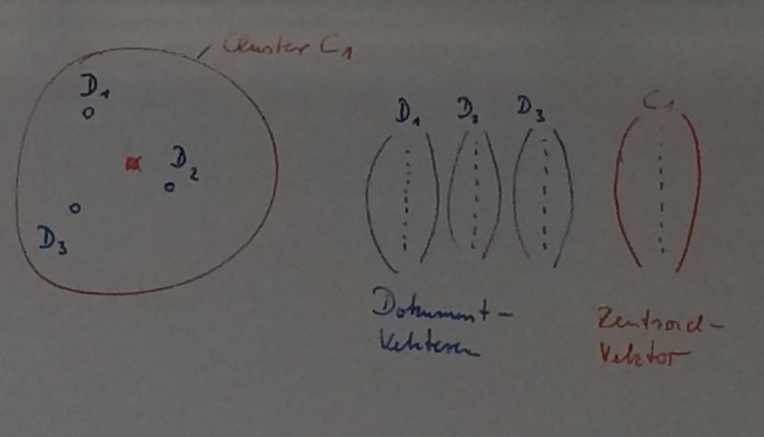 Cluster C₁
D₁
D₂
D₃
D₁ D₂ D₃ C₁
Dokument-
Vektoren
Zentroid-
Vektor